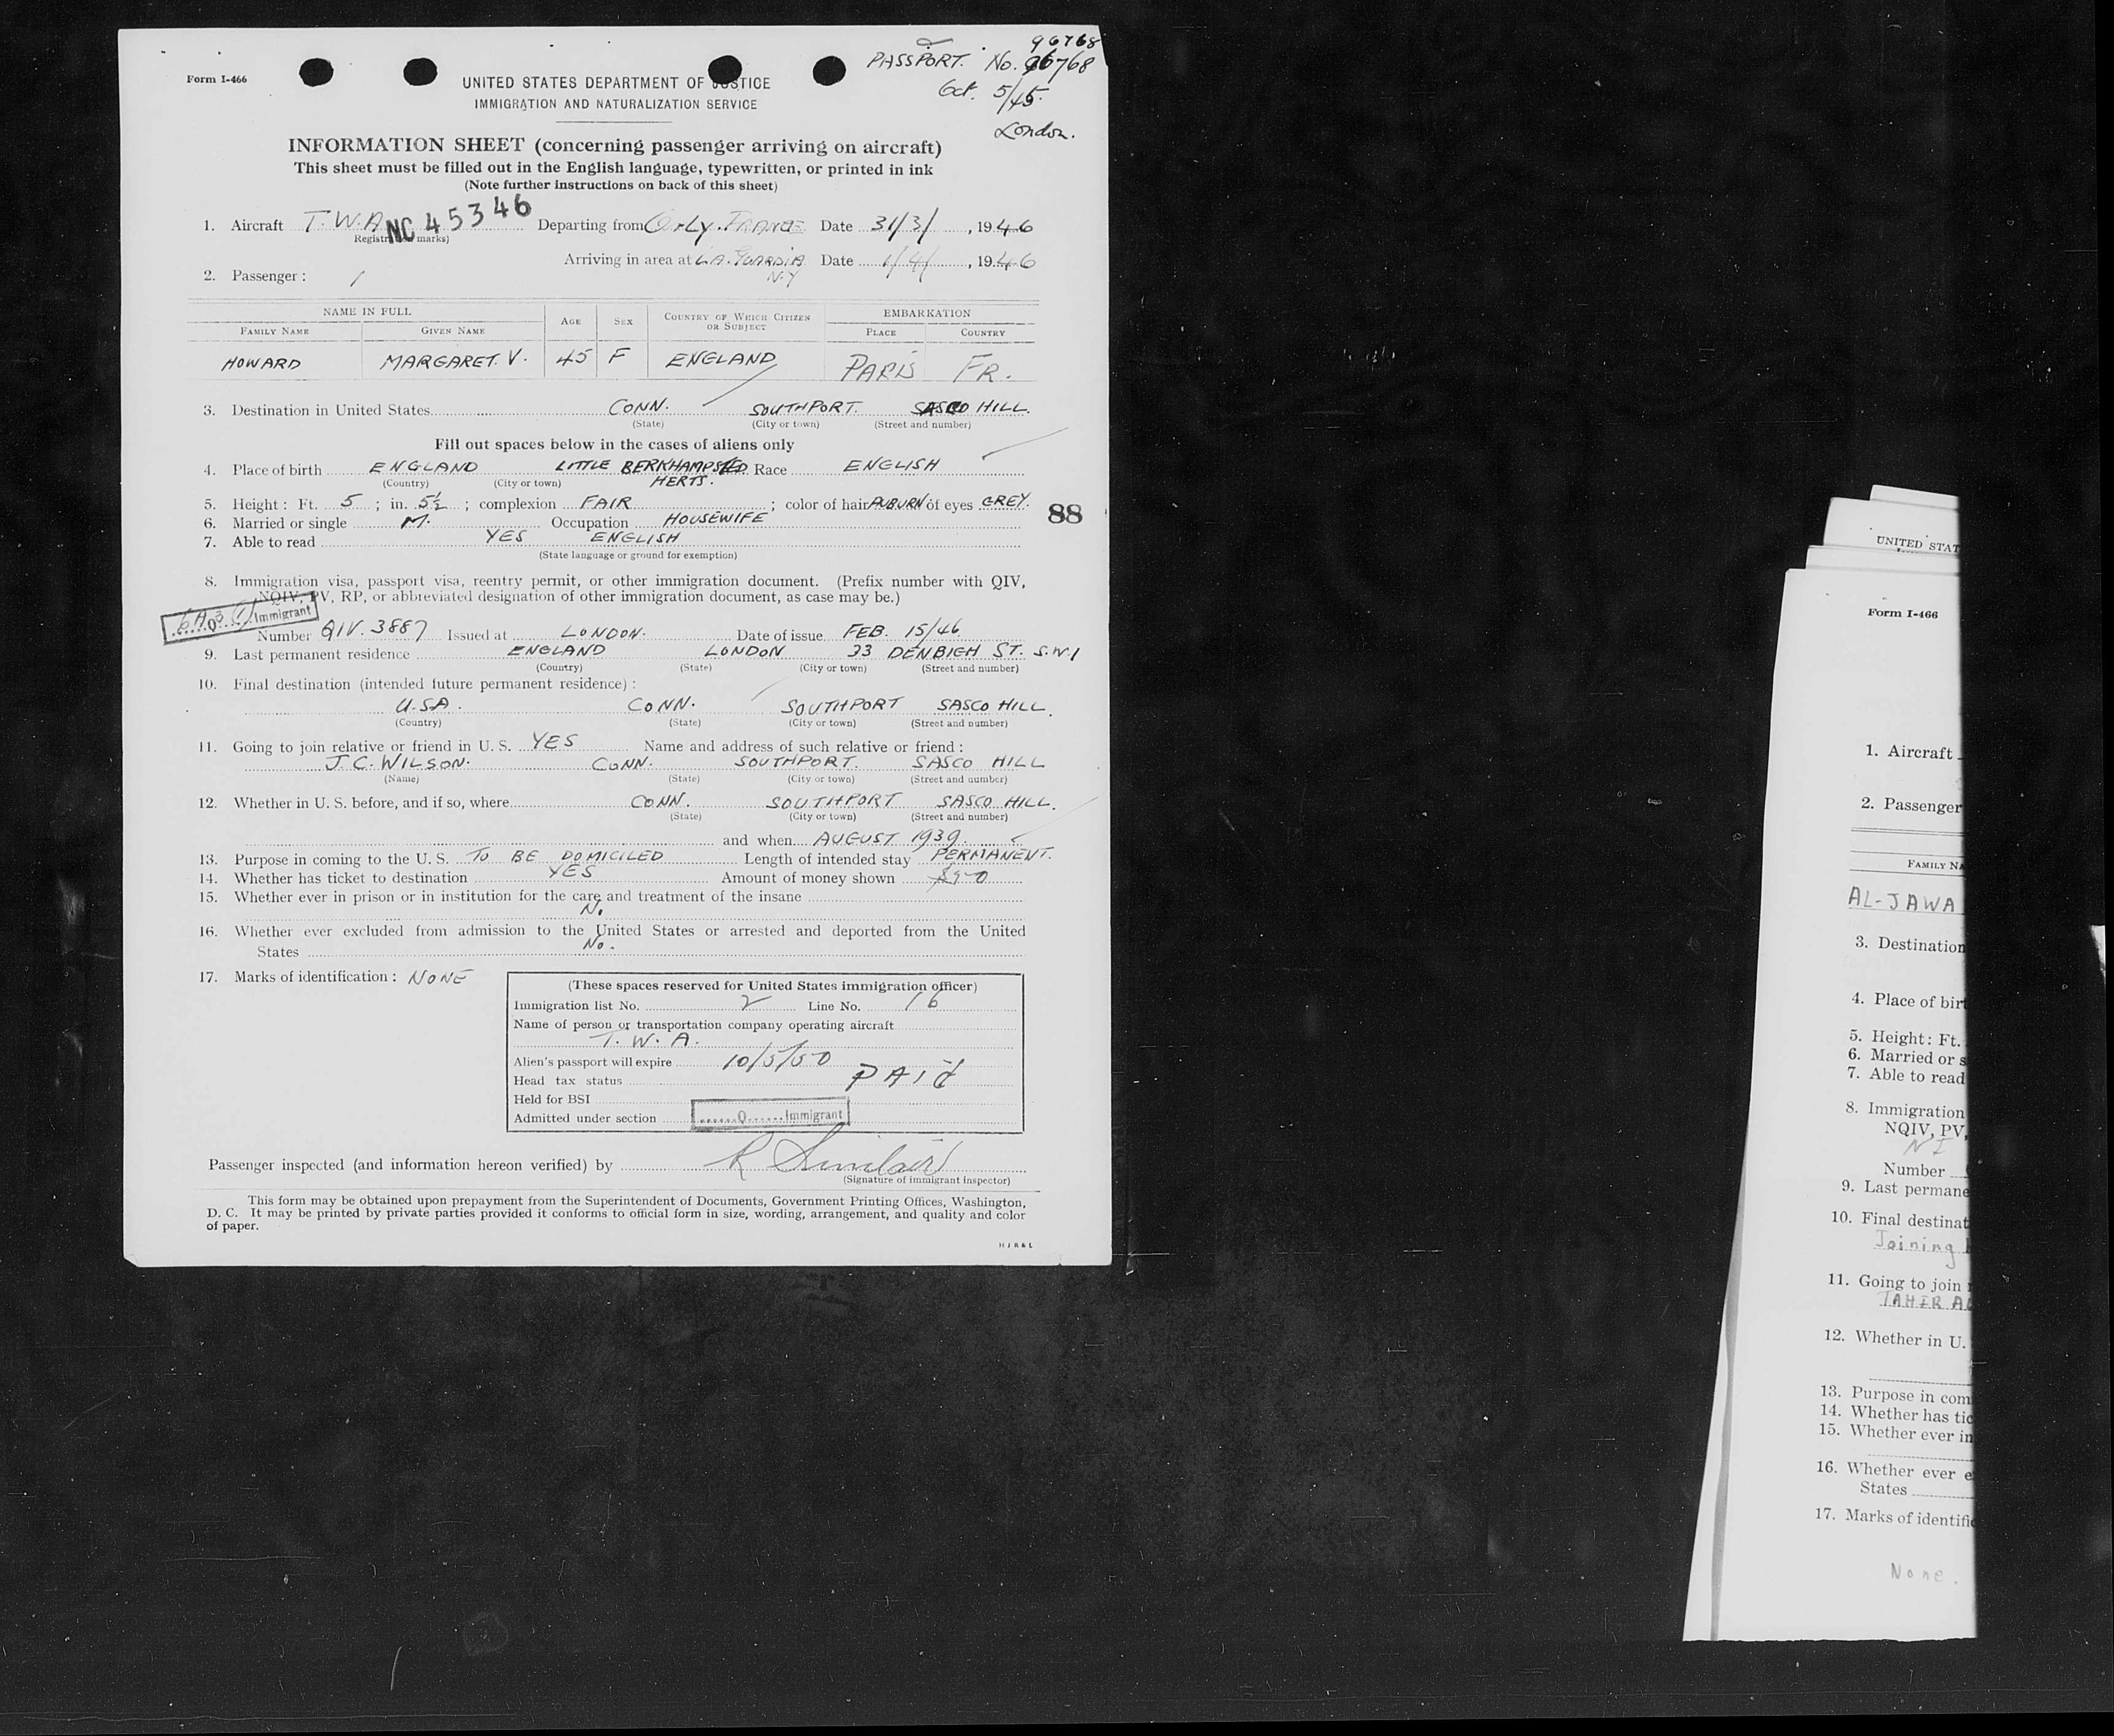 Form I-466
96768
PASSPORT. No. 96768
Oct. 5/45.
London.
UNITED STATES DEPARTMENT OF JUSTICE
IMMIGRATION AND NATURALIZATION SERVICE
INFORMATION SHEET (concerning passenger arriving on aircraft)
This sheet must be filled out in the English language, typewritten, or printed in ink
(Note further instructions on back of this sheet)
1. Aircraft T.W.A NC 45346 Departing from Orly. FRANCE Date 31/3/, 1946
(Registration marks)
Arriving in area at LA. GUARDIA N.Y Date 1/4/, 1946
2. Passenger: 1
NAME IN FULL AGE SEX COUNTRY OF WHICH CITIZEN OR SUBJECT EMBARKATION
FAMILY NAME GIVEN NAME PLACE COUNTRY
HOWARD MARGARET. V. 45 F ENGLAND PARIS FR.
3. Destination in United States CONN. SOUTHPORT. SASCO HILL.
(State) (City or town) (Street and number)
Fill out spaces below in the cases of aliens only
4. Place of birth ENGLAND LITTLE BERKHAMPSTED Race ENGLISH
(Country) (City or town) HERTS.
5. Height: Ft. 5; in. 5½; complexion FAIR; color of hair AUBURN of eyes GREY.
88
6. Married or single M. Occupation HOUSEWIFE
7. Able to read YES ENGLISH
(State language or ground for exemption)
8. Immigration visa, passport visa, reentry permit, or other immigration document. (Prefix number with QIV,
NQIV, PV, RP, or abbreviated designation of other immigration document, as case may be.)
6A3(1) Q Immigrant
Number QIV. 3887 Issued at LONDON. Date of issue FEB. 15/46
9. Last permanent residence ENGLAND LONDON 33 DENBIGH ST. S.W1
(Country) (State) (City or town) (Street and number)
10. Final destination (intended future permanent residence):
U.SA. CONN. SOUTHPORT SASCO HILL.
(Country) (State) (City or town) (Street and number)
11. Going to join relative or friend in U. S. YES Name and address of such relative or friend:
J.C. WILSON. CONN. SOUTHPORT. SASCO HILL
(Name) (State) (City or town) (Street and number)
12. Whether in U. S. before, and if so, where CONN. SOUTHPORT SASCO HILL.
(State) (City or town) (Street and number)
and when AUGUST 1939.
13. Purpose in coming to the U. S. TO BE DOMICILED Length of intended stay PERMANENT.
14. Whether has ticket to destination YES Amount of money shown
15. Whether ever in prison or in institution for the care and treatment of the insane
No
16. Whether ever excluded from admission to the United States or arrested and deported from the United
States No.
17. Marks of identification: NONE
(These spaces reserved for United States immigration officer)
Immigration list No. 2 Line No. 16
Name of person or transportation company operating aircraft
T. W. A.
Alien's passport will expire 10/5/50
Head tax status PAid
Held for BSI
Admitted under section Q Immigrant
Passenger inspected (and information hereon verified) by R Sinclair
(Signature of immigrant inspector)
This form may be obtained upon prepayment from the Superintendent of Documents, Government Printing Offices, Washington,
D. C. It may be printed by private parties provided it conforms to official form in size, wording, arrangement, and quality and color
of paper.
H J R & L
UNITED STAT
Form I-466
1. Aircraft
2. Passenger
FAMILY NA
AL-JAWA
3. Destination
4. Place of birt
5. Height: Ft.
6. Married or s
7. Able to read
8. Immigration
NQIV, PV,
NI
Number
9. Last permane
10. Final destinat
Joining
11. Going to join
TAHIR A
12. Whether in U.
13. Purpose in com
14. Whether has tic
15. Whether ever in
16. Whether ever e
States
17. Marks of identific
None.